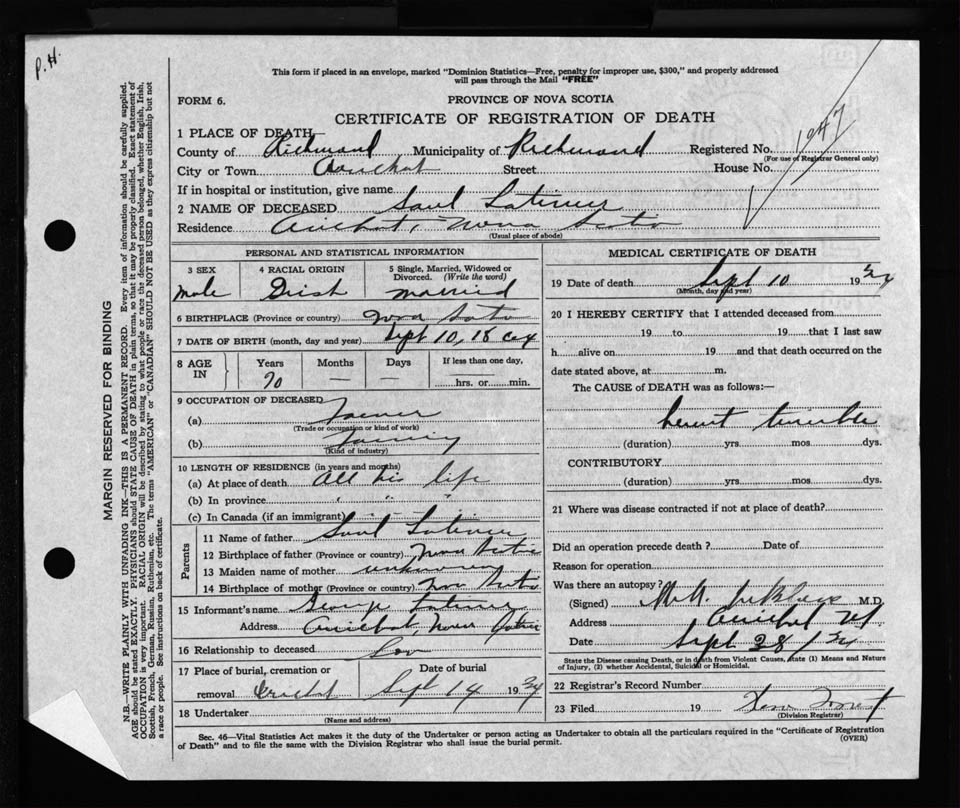 P. H.
This form if placed in an envelope, marked "Dominion Statistics—Free, penalty for improper use, $300," and properly addressed
will pass through the Mail "FREE"
FORM 6.
PROVINCE OF NOVA SCOTIA
CERTIFICATE OF REGISTRATION OF DEATH
1 PLACE OF DEATH—
County of Richmond Municipality of Richmond Registered No. 1947
(For use of Registrar General only)
City or Town Arichat Street House No.
If in hospital or institution, give name
2 NAME OF DECEASED Saul Latimer
Residence Arichat, Nova Scotia
(Usual place of abode)
PERSONAL AND STATISTICAL INFORMATION
3 SEX
Male
4 RACIAL ORIGIN
Irish
5 Single, Married, Widowed or
Divorced. (Write the word)
married
6 BIRTHPLACE (Province or country) Nova Scotia
7 DATE OF BIRTH (month, day and year) Sept 10, 18
8 AGE
IN
Years
70
Months
—
Days
—
If less than one day,
hrs. or min.
9 OCCUPATION OF DECEASED
(a) Farmer
(Trade or occupation or kind of work)
(b) Farming
(Kind of industry)
10 LENGTH OF RESIDENCE (in years and months)
(a) At place of death All his life
(b) In province " " "
(c) In Canada (if an immigrant)
Parents
11 Name of father Saul Latimer
12 Birthplace of father (Province or country) Nova Scotia
13 Maiden name of mother unknown
14 Birthplace of mother (Province or country) Nova Scotia
15 Informant's name George Latimer
Address Arichat, Nova Scotia
16 Relationship to deceased Son
17 Place of burial, cremation or
removal Arichat
Date of burial
Sept 14 1934
18 Undertaker
(Name and address)
MEDICAL CERTIFICATE OF DEATH
19 Date of death Sept 10 1934
(Month, day and year)
20 I HEREBY CERTIFY that I attended deceased from
19 to 19 that I last saw
h alive on 19 and that death occurred on the
date stated above, at m.
The CAUSE of DEATH was as follows:—
heart trouble
(duration) yrs. mos. dys.
CONTRIBUTORY
(duration) yrs. mos. dys.
21 Where was disease contracted if not at place of death?
Did an operation precede death ? Date of
Reason for operation
Was there an autopsy?
(Signed) M.D.
Address Arichat
Date Sept 28/34
State the Disease causing Death, or in death from Violent Causes, state (1) Means and Nature
of Injury, (2) whether Accidental, Suicidal or Homicidal.
22 Registrar's Record Number
23 Filed 19
(Division Registrar)
Sec. 46—Vital Statistics Act makes it the duty of the Undertaker or person acting as Undertaker to obtain all the particulars required in the "Certificate of Registration
of Death" and to file the same with the Division Registrar who shall issue the burial permit. (OVER)
MARGIN RESERVED FOR BINDING
N.B.—WRITE PLAINLY WITH UNFADING INK—THIS IS A PERMANENT RECORD. Every item of information should be carefully supplied.
AGE should be stated EXACTLY. PHYSICIANS should STATE CAUSE OF DEATH in plain terms, so that it may be properly classified. Exact statement of
OCCUPATION is very important. RACIAL ORIGIN will be described by stating to what people or race the deceased person belonged, whether English, Irish,
Scottish, French, German, Russian, Ruthenian, etc. The terms "AMERICAN" or "CANADIAN" SHOULD NOT BE USED as they express citizenship but not
a race or people. See instructions on back of certificate.